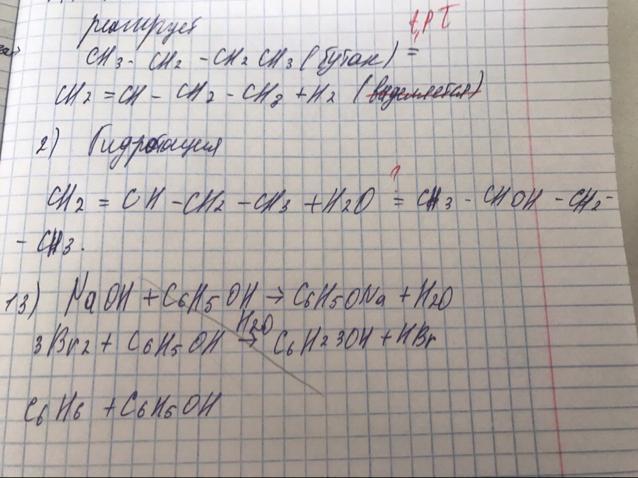 реагирует
t, P T
CH3 - CH2 - CH2 CH3 (бутан) =
CH2 = CH - CH2 - CH3 + H2 (выделяется)
2) Гидротация
?
CH2 = CH - CH2 - CH3 + H2O = CH3 - CHOH - CH2 -
- CH3.
13) NaOH + C6H5OH → C6H5ONa + H2O
H2O
3Br2 + C6H5OH → C6H2 3OH + HBr
C6H6 + C6H5OH